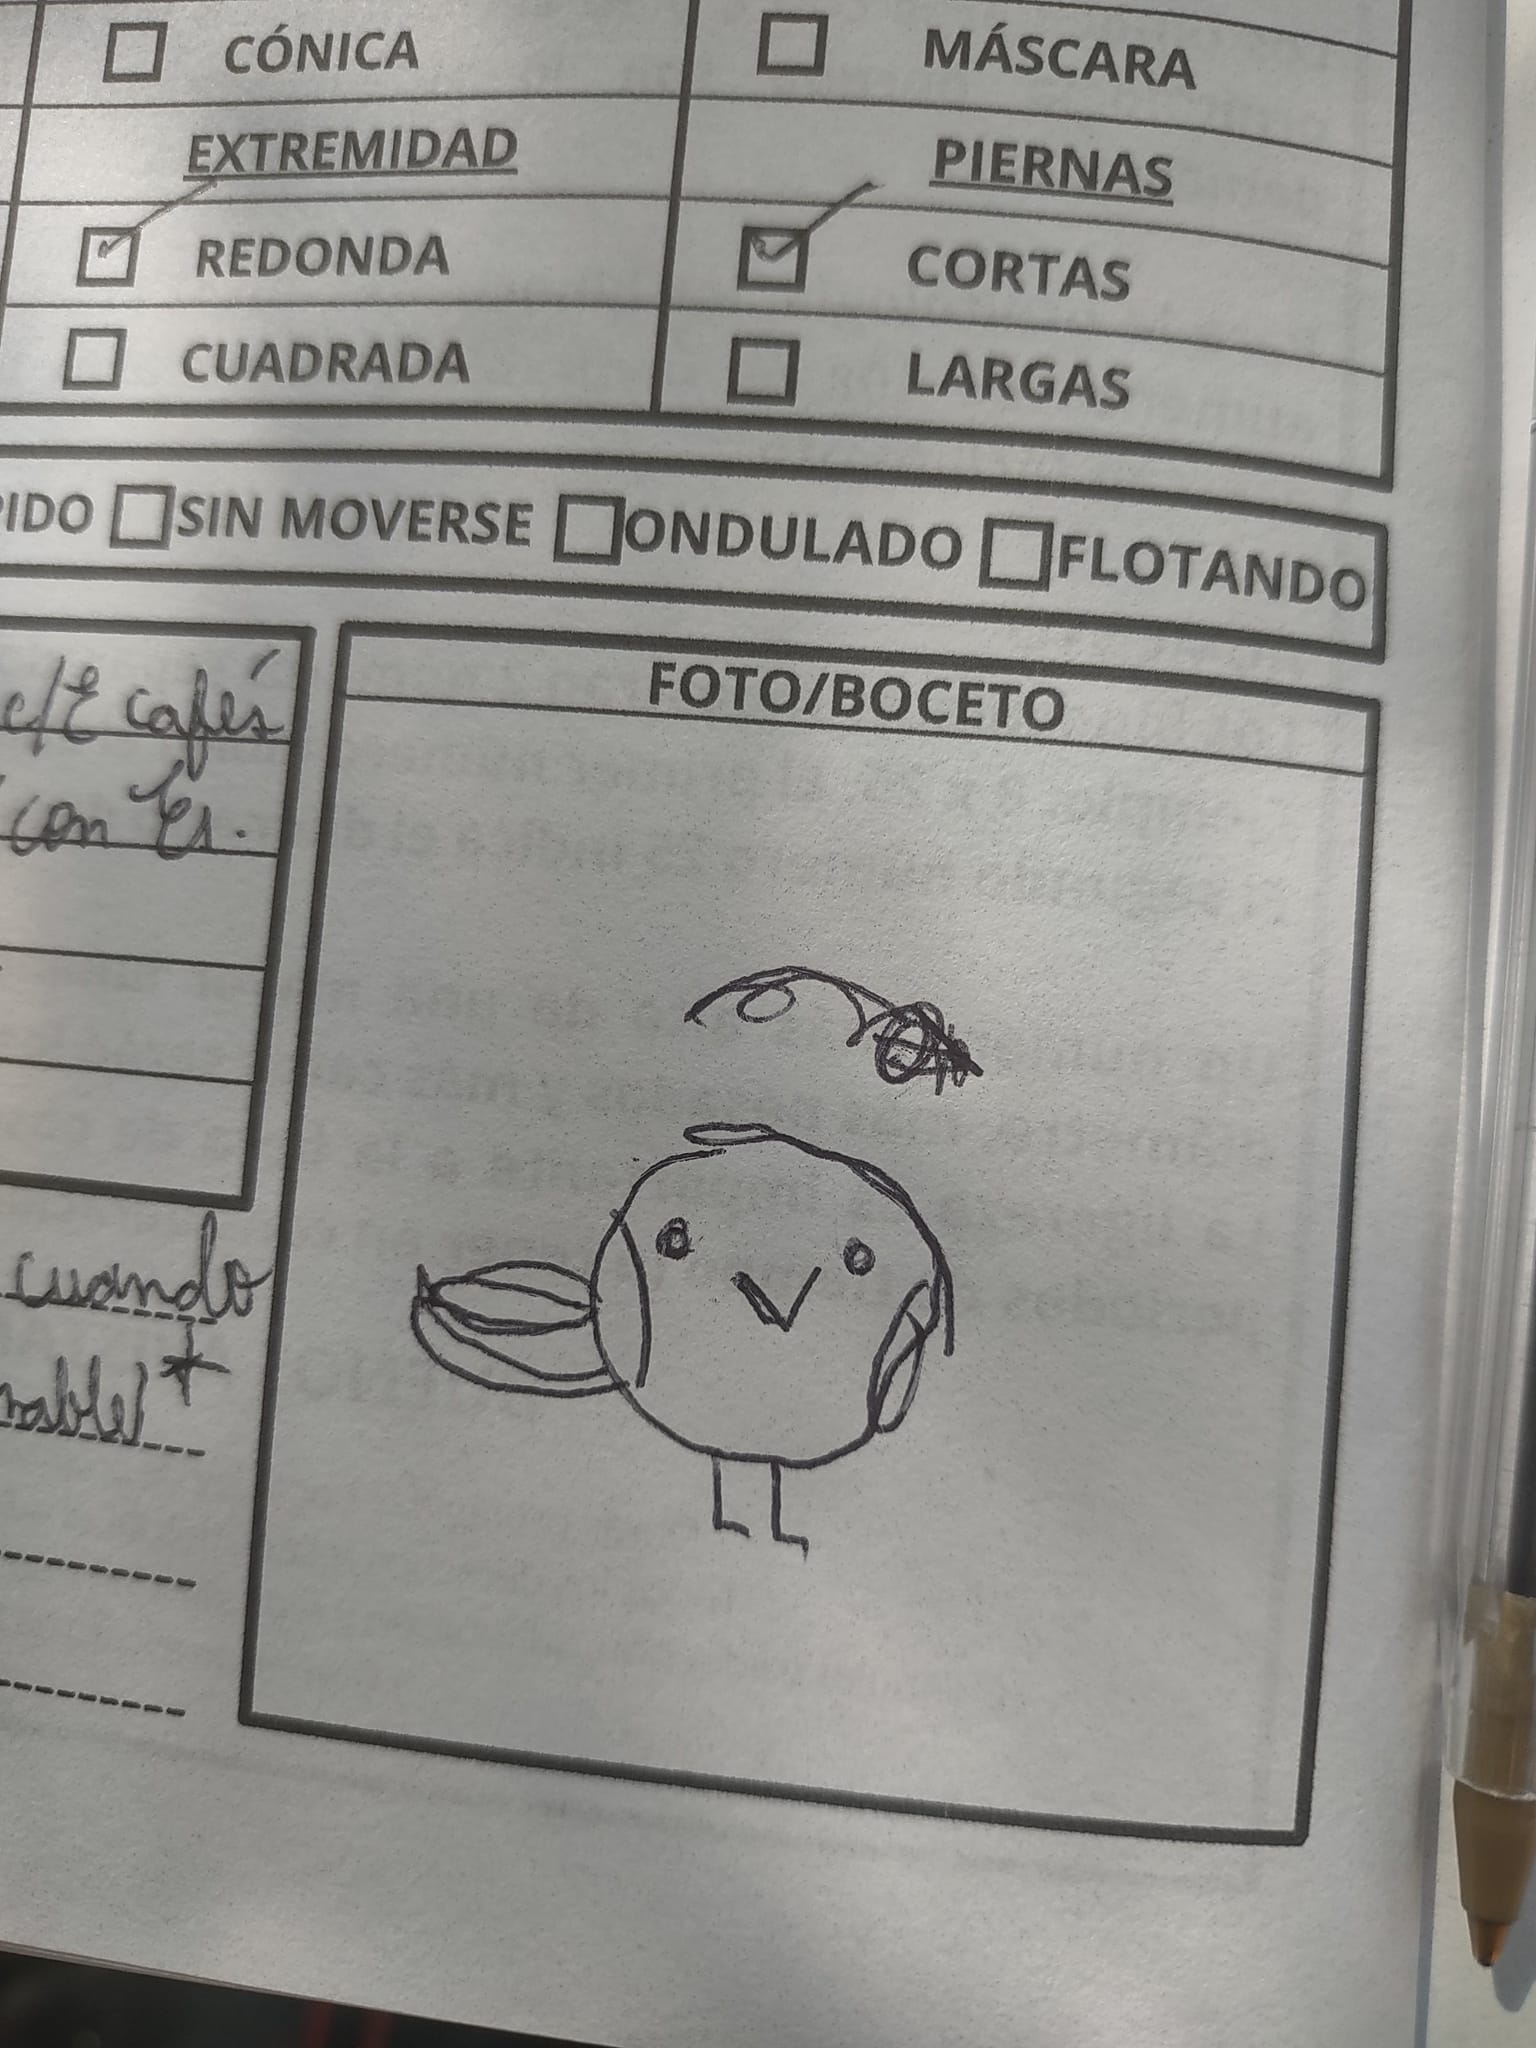 CÓNICA
MÁSCARA
EXTREMIDAD
PIERNAS
REDONDA
CORTAS
CUADRADA
LARGAS
PIDO SIN MOVERSE ONDULADO FLOTANDO
FOTO/BOCETO
c/E cafés
con
cuando